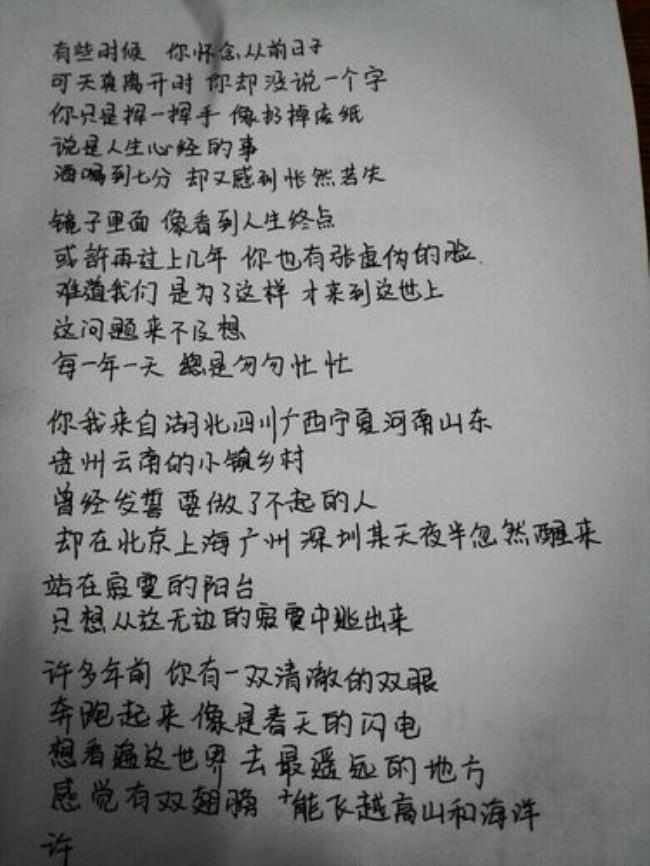 有些时候 你怀念从前日子
可天真离开时 你却没说一个字
你只是挥一挥手 像扔掉废纸
说是人生必经的事
酒喝到七分 却又感到怅然若失
镜子里面 像看到人生终点
或许再过上几年 你也有张虚伪的脸
难道我们 是为了这样 才来到这世上
这问题来不及想
每一年一天 总是匆匆忙忙
你我来自湖北四川广西宁夏河南山东
贵州云南的小镇乡村
曾经发誓 要做了不起的人
却在北京上海广州深圳某天夜半忽然醒来
站在寂寞的阳台
只想从这无边的寂寞中逃出来
许多年前 你有一双清澈的双眼
奔跑起来 像是春天的闪电
想看遍这世界 去最遥远的地方
感觉有双翅膀 能飞越高山和海洋
许